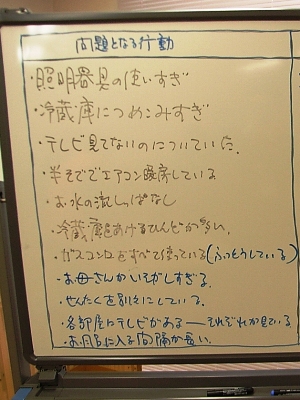 問題となる行動
・照明器具の使いすぎ
・冷蔵庫につめこみすぎ
・テレビ見てないのについていた。
・半そででエアコン暖房している
・お水の流しっぱなし
・冷蔵庫をあけるひんどが多い。
・ガスコンロをすべて使っている(ふっとうしている)
・お母さんがいそがしすぎる。
・せんたくを別々にしている。
・各部屋にテレビがある ― それぞれが見ている。
・お風呂に入る間隔が長い。